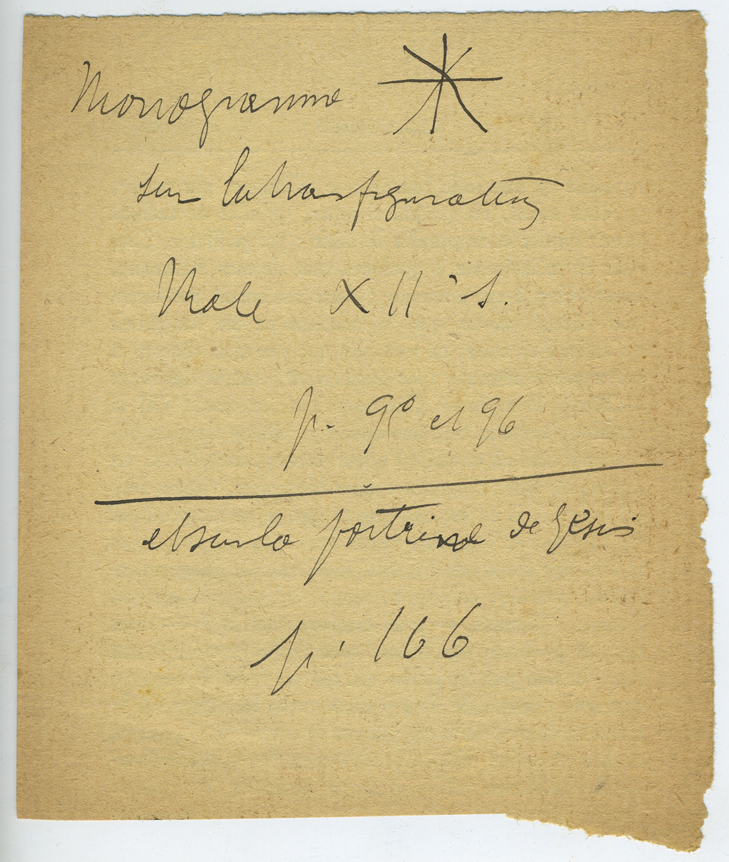 Monogramme
sur la transfiguration
Male XIIe s.
p. 95 et 96
et sur la poitrine de Jésus
p. 166